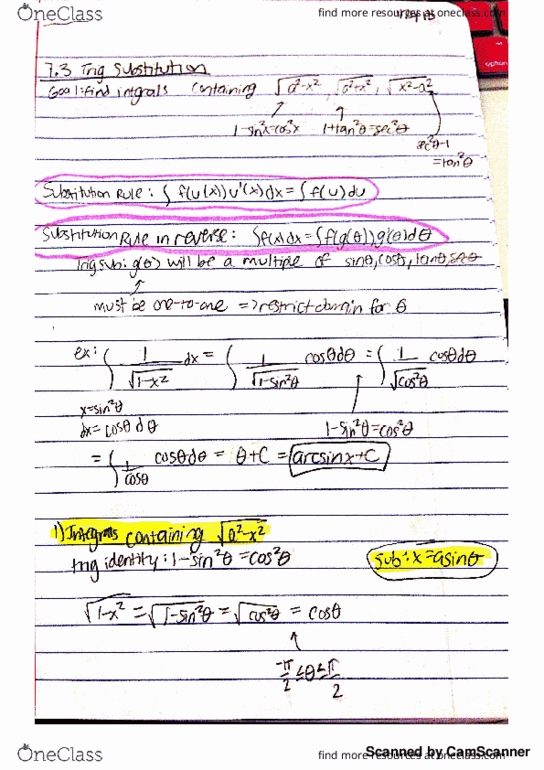 OneClass
find more resources at oneclass.com
7.3 Trig Substitution
Goal: find intgrals containing √a²-x², √a²+x², √x²-a²
1-sin²θ=cos²x 1+tan²θ=sec²θ
sec²θ-1
=tan²θ
Substitution Rule: ∫ f(u(x)) u'(x) dx = ∫ f(u) du
Substitution Rule in reverse: ∫f(x) dx = ∫ f(g(θ)) g'(θ) dθ
Trig sub: g(θ) will be a multiple of sinθ, cosθ, tanθ, secθ
must be one-to-one => restrict domain for θ
ex: ∫ 1/√1-x² dx = ∫ 1/√1-sin²θ cosθdθ = ∫ 1/√cos²θ cosθdθ
x=sin²θ
dx = cosθ dθ
1-sin²θ=cos²θ
= ∫ 1/cosθ cosθdθ = θ+C = arcsinx+C
1) Intgrals containing √a²-x²
trig identity: 1-sin²θ = cos²θ
sub: x=asinθ
√1-x² = √1-sin²θ = √cos²θ = cosθ
-π/2 ≤θ≤ π/2
OneClass
find more resources at oneclass.com
Scanned by CamScanner